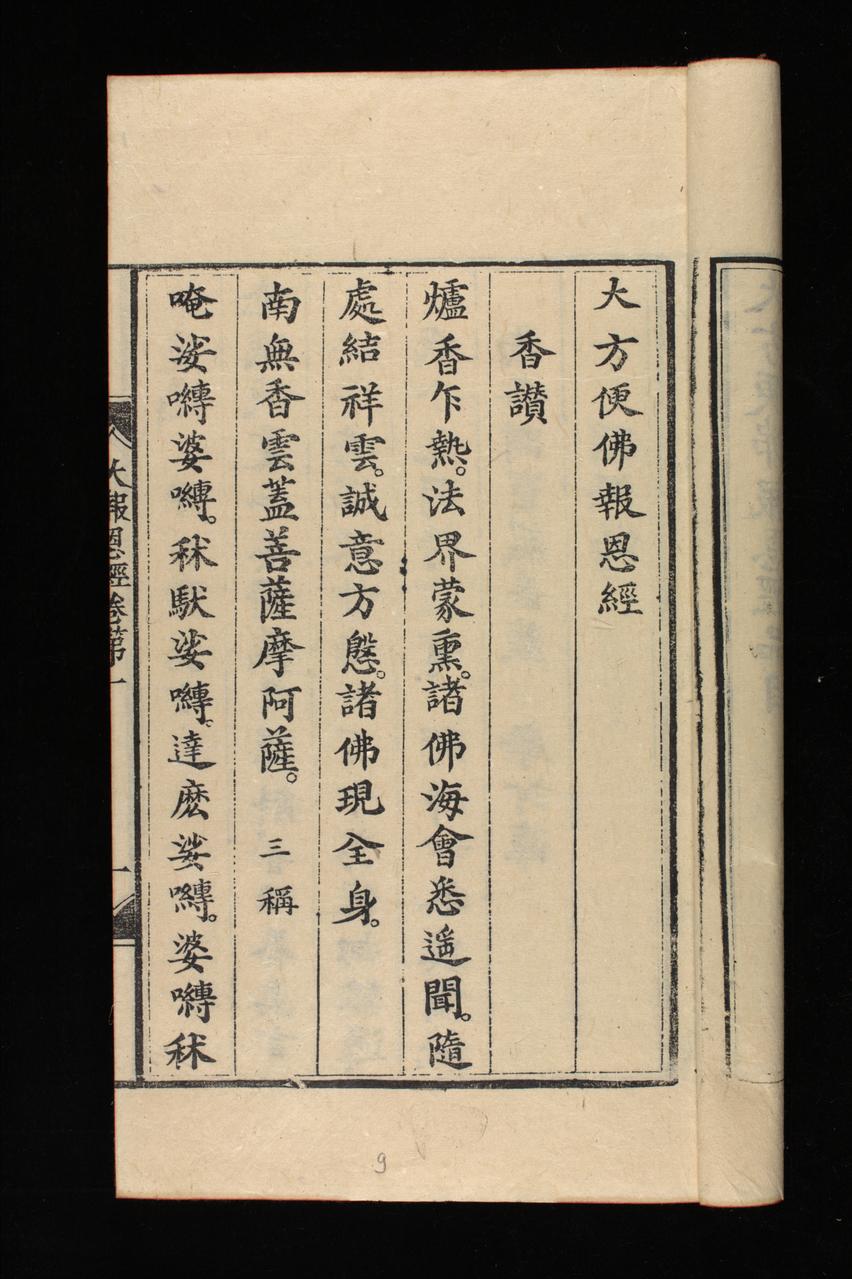 大方便佛報恩經
香讚
爐香乍熱。法界蒙熏。諸佛海會悉遥聞。隨
處結祥雲。誠意方慇。諸佛現全身。
南無香雲蓋菩薩摩阿薩。 三稱
唵娑嚩婆嚩。秫馱娑嚩。達麽娑嚩。婆嚩秫
大報恩經卷第一
一
9